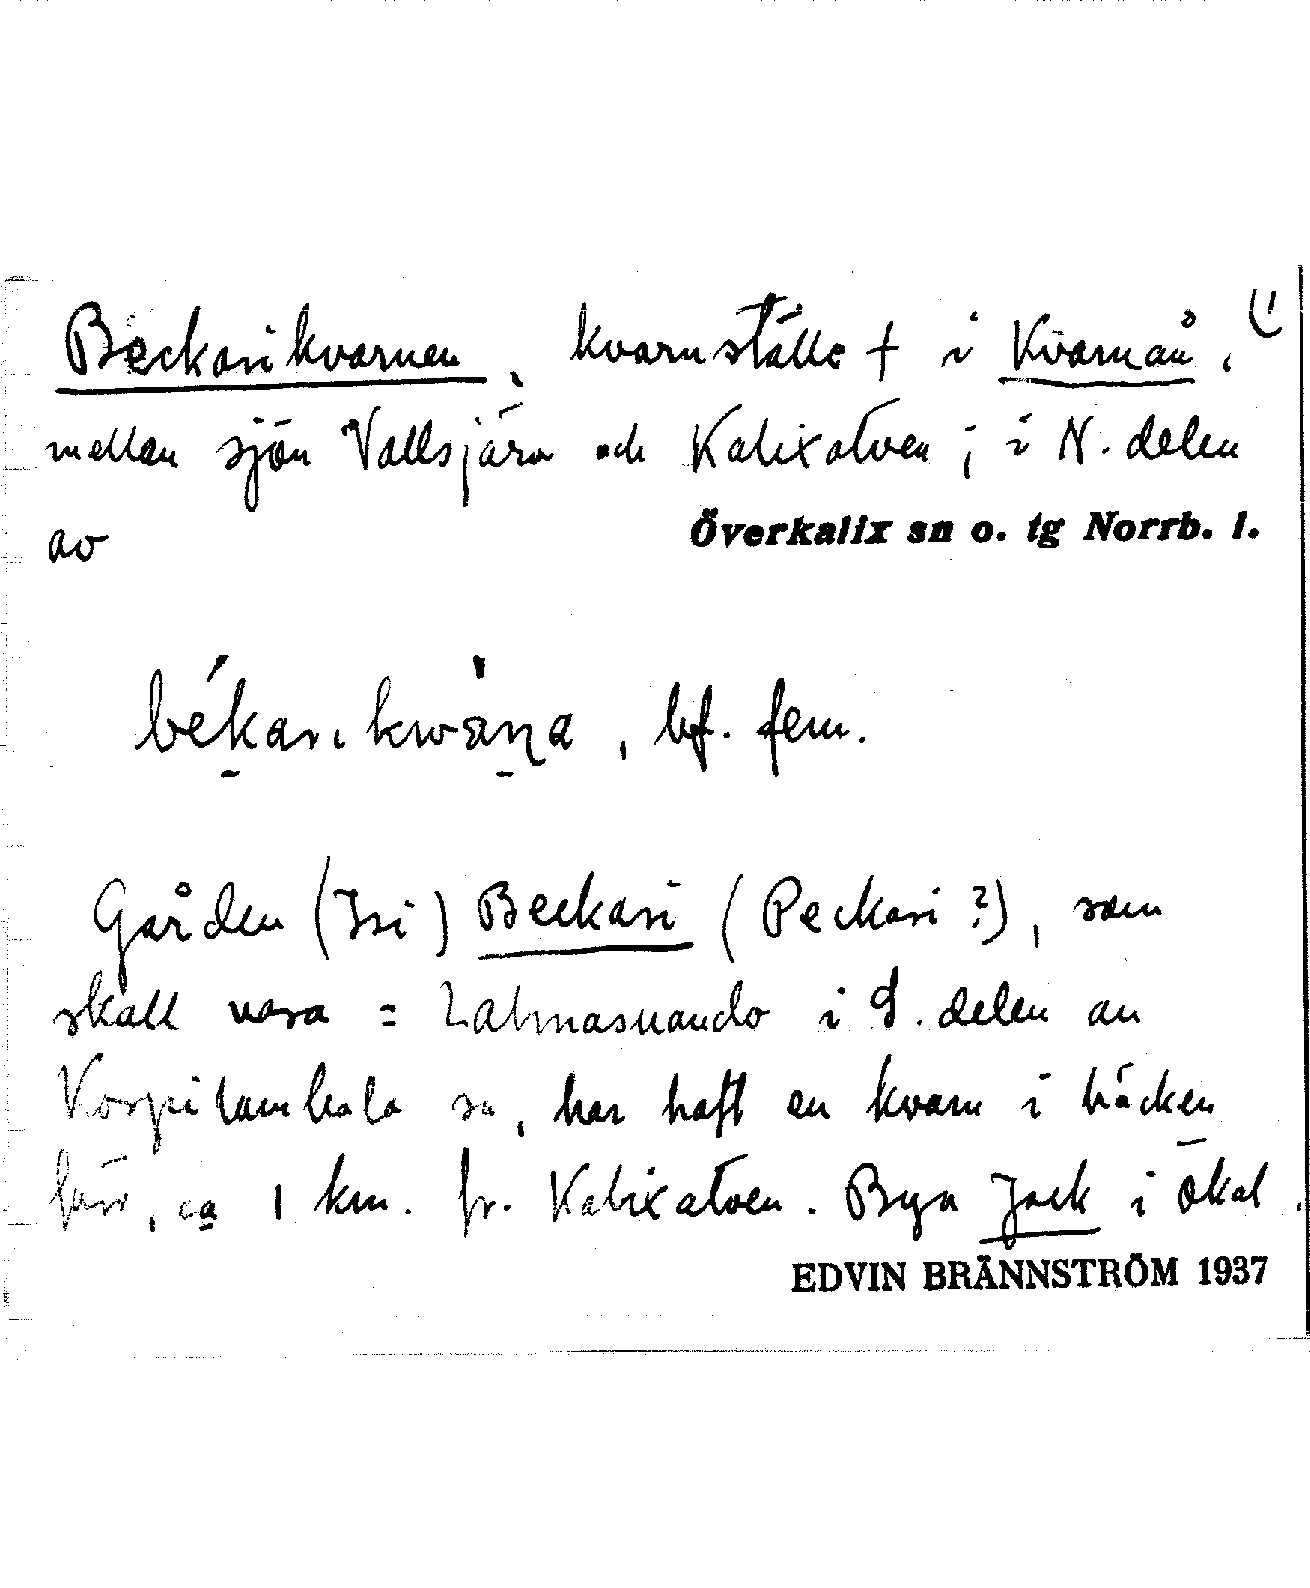 Beckarikvarnen, kvarnställe † i Kvarnån,
mellan sjön Vallsjärv och Kalixälven; i N. delen
av Överkalix sn o. tg Norrb. l.
békarikwàṇa, bf. fem.
Gården (Isi) Beckari (Peckari?), som
skall vara = Lahnasuando i S. delen av
Korpilombolo sn, har haft en kvarn i bäcken
här, ca 1 km. fr. Kalixälven. Byn Jock i Ökal.
EDVIN BRÄNNSTRÖM 1937